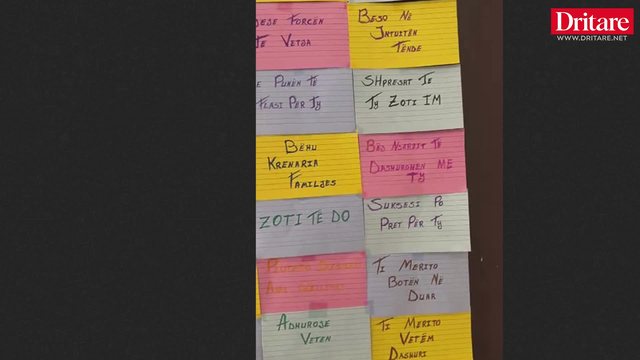 Dritare
WWW.DRITARE.NET
FORCËN
TE VETJA
BESO NË
INTUITËN
TËNDE
PUNËN TË
FLASI PËR TY
SHPRESAT TE
TY ZOTI IM
BËHU
KRENARIA
FAMILJES
BËJ NJERZIT TË
DASHUROHEN ME
TY
ZOTI TË DO
SUKSESI PO
PRET PËR TY
TI MERITO
BOTËN NË
DUAR
ADHUROJE
VETEN
TI MERITO
VETËM
DASHURI